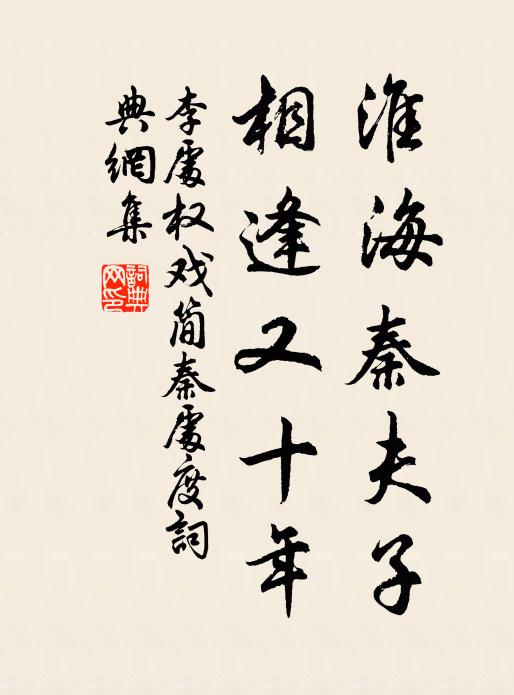 淮海秦夫子
相逢又十年
李處权戏简秦處度詞
典網集
詞典
网印